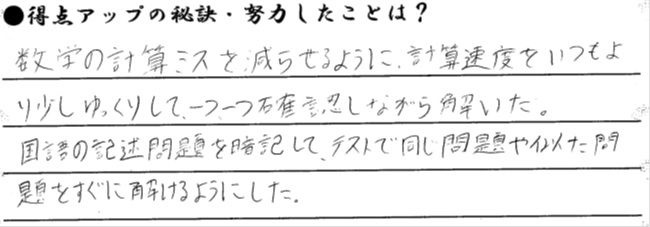 ●得点アップの秘訣・努力したことは？
数学の計算ミスを減らせるように、計算速度をいつもよ
り少しゆっくりして、一つ、一つ確認しながら解いた。
国語の記述問題を暗記して、テストで同じ問題や似た問
題をすぐに解けるようにした。